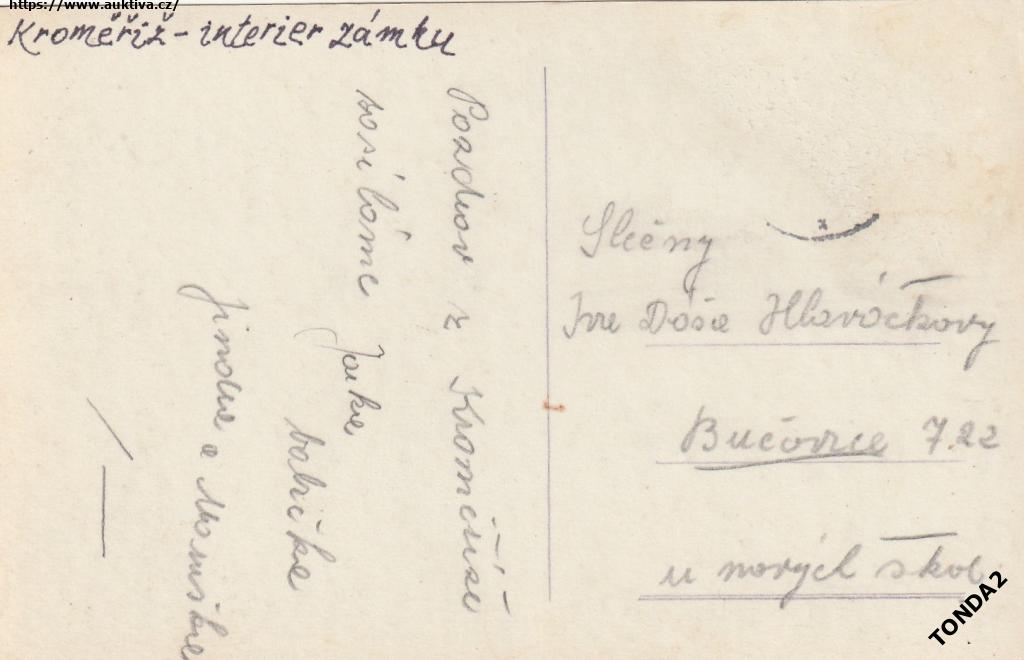 https://www.auktiva.cz/
Kroměříž - interier zámku
Pozdrav z Kroměříže
babička
Jindra a Maminka
Slečny
Dáša Hlaváčkovy
Bučovice 722
u nových škol
TONDA2